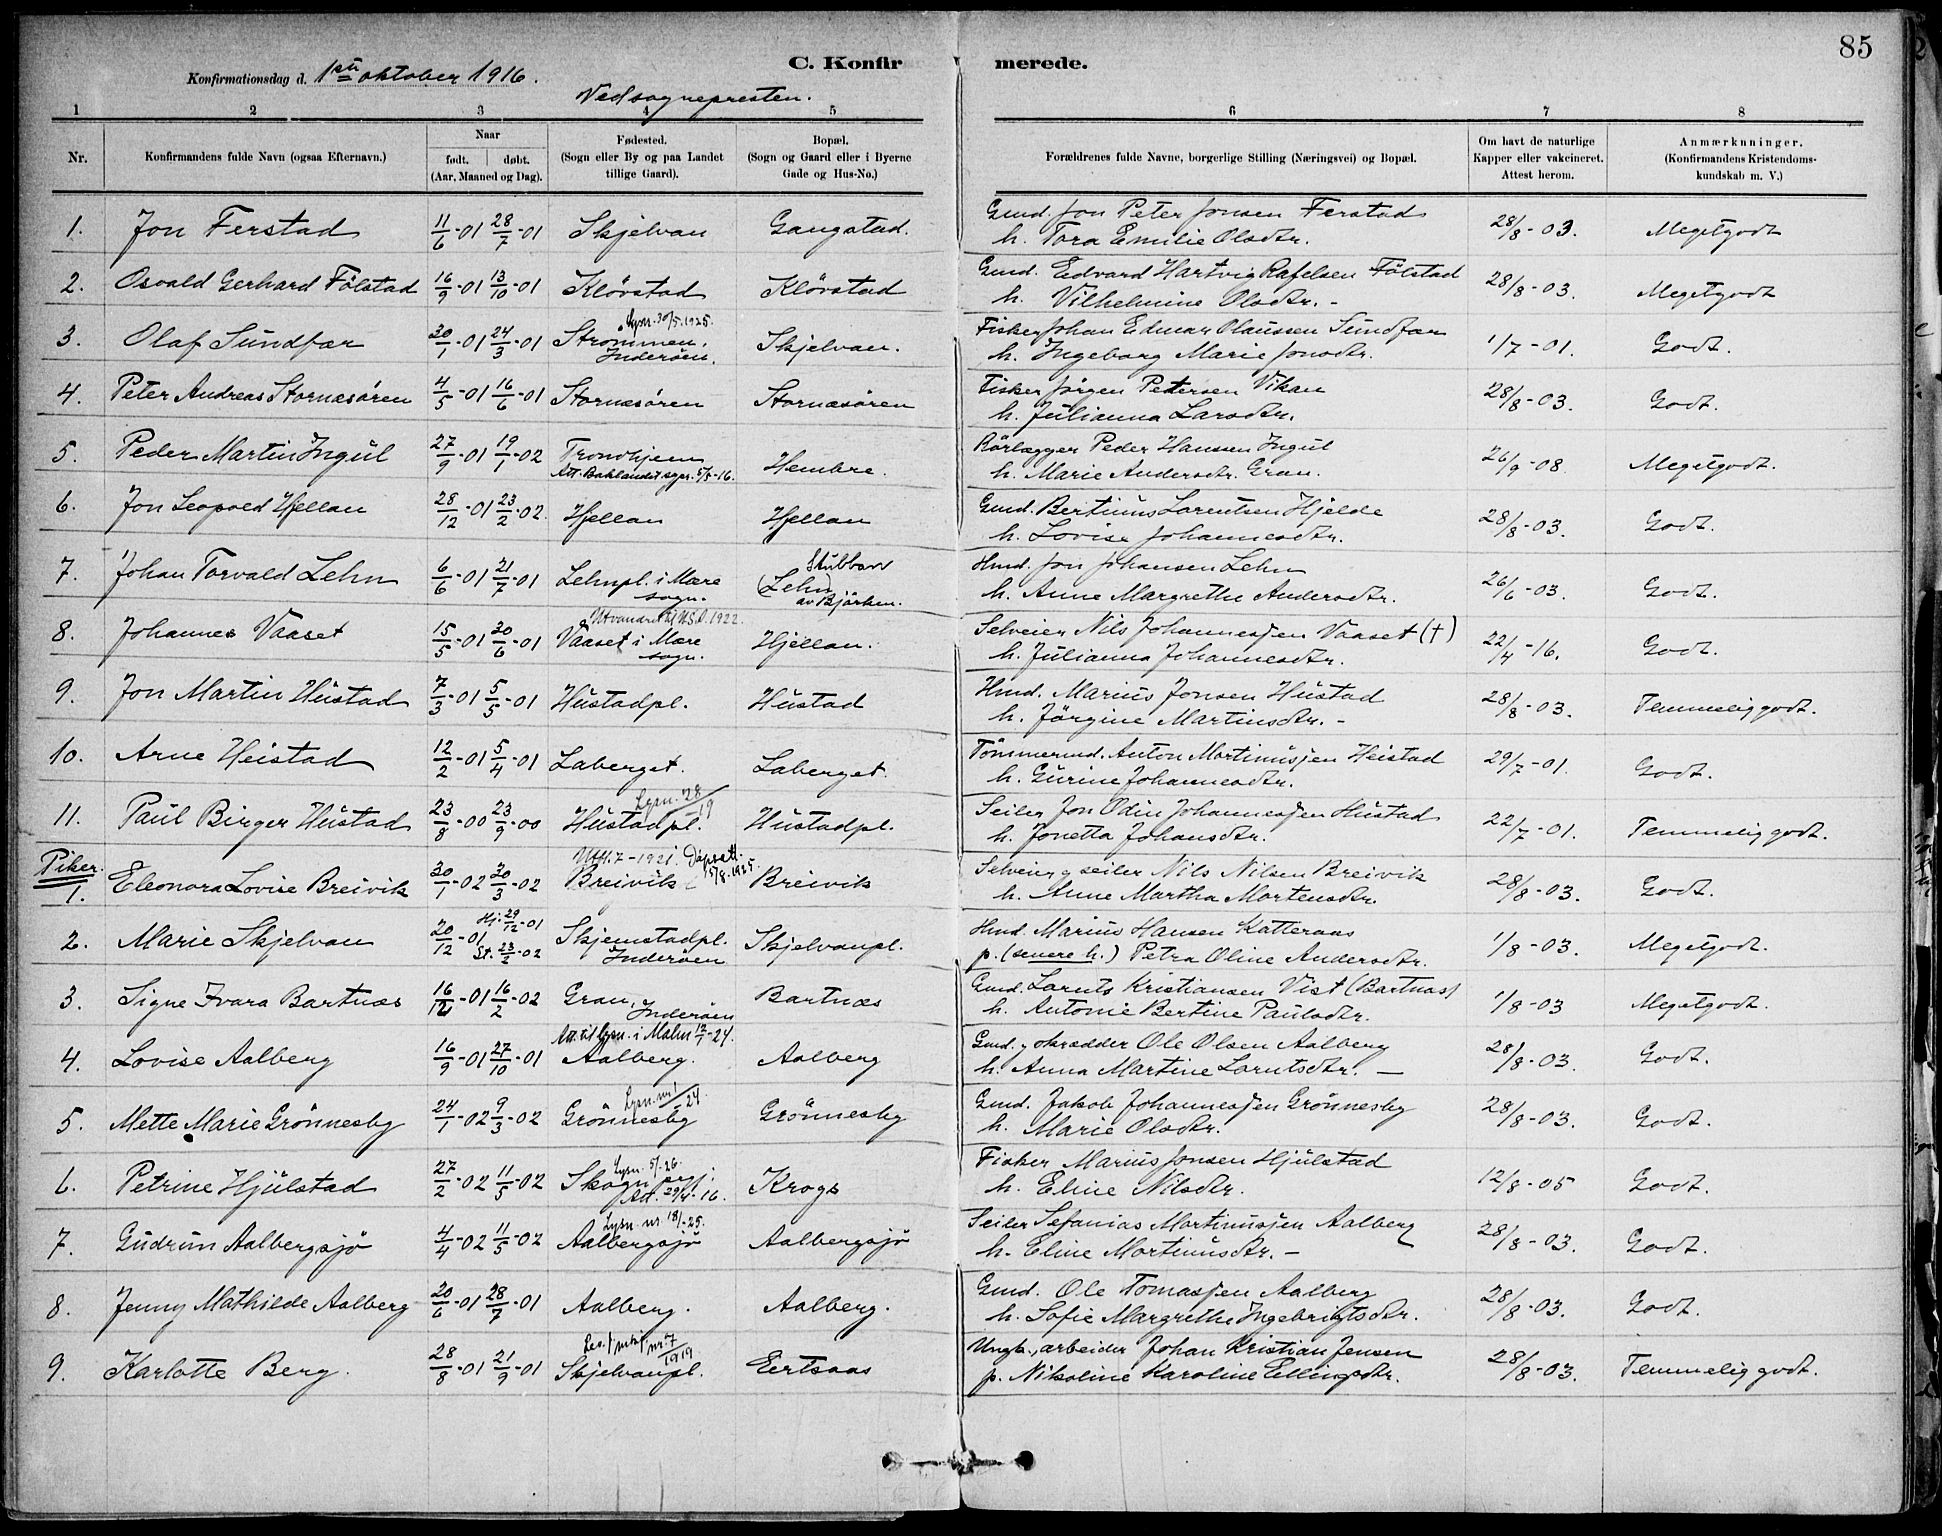 85
C. Konfirmerede.
Konfirmationsdag d. 1ste oktober 1916.
Ved sognepresten.
1 2 3 4 5 6 7 8
Nr. Konfirmandens fulde Navn (ogsaa Efternavn.) Naar født. døbt. (Aar, Maaned og Dag). Fødested. (Sogn eller By og paa Landet tillige Gaard). Bopæl. (Sogn og Gaard eller i Byerne Gade og Hus-No.) Forældrenes fulde Navne, borgerlige Stilling (Næringsvei) og Bopæl. Om havt de naturlige Kapper eller vakcineret. Attest herom. Anmærkninger. (Konfirmandens Kristendomskundskab m. V.)
1. Jon Ferstad 11/6-01 28/7-01 Skjelvan Gangstad. Gmd. Jon Peter Jonsen Ferstad 28/8-03. Megetgodt
h. Tora Emilie Olsdtr.
2. Osvald Gerhard Følstad 16/9-01 13/10-01 Klövstad Klövstad Gmd. Edvard Hartvig Rafelsen Følstad 28/8-03. Megetgodt
h. Vilhelmine Olsdtr. -
Lysn. 30/5.1925.
3. Olaf Sundfær 30/1-01 24/3-01 Strömmen, Inderöen. Skjelvan. Fisker Johan Edmar Olaussen Sundfær 1/7-01. Godt.
h. Ingeborg Marie Jonsdtr.
4. Peter Andreas Stornæsören 4/5-01 16/6-01 Stornæsören Stornæsören Fisker Jörgen Petersen Vikan 28/8-03. Godt.
h. Julianna Larsdtr.
5. Peder Martin Ingul 27/9-01 19/1-02 Trondhjem Hembre. Rörlægger Peder Hansen Ingul 26/9-08. Megetgodt.
Att. Baklandet sgpr. 5/5-16. h. Marie Andersdtr. Gran.
6. Jon Leopold Hjellan 28/12-01 23/2-02. Hjellan Hjellan Gmd. Bertinus Lorentsen Hjelde 28/8-03. Godt.
h. Lovise Johannesdtr.
7. Johan Torvald Lehn 6/6-01 21/7-01 Lehnpl. i Mære sogn. Stubban (Lehn) av Björken. Hmd. Jon Johansen Lehn 26/6-03. Godt.
h. Anne Margrethe Andersdtr.
Utvandret til U.S.A. 1922.
8. Johannes Vaaset 15/5-01 30/6-01 Vaaset i Mære sogn. Hjellan. Selveier Nils Johannessen Vaaset (†) 22/4-16. Godt.
h. Julianna Johannesdtr.
9. Jon Martin Hustad 7/3-01 5/5-01 Hustadpl. Hustad Hmd. Marius Jonsen Hustad 28/8-03. Temmelig godt.
h. Jörgine Martinsdtr. -
10. Arne Heistad 12/2-01 5/4-01 Laberget. Laberget. Tömmermd. Anton Martinussen Heistad 29/7-01. Godt.
h. Gurine Johannesdtr.
Lysn. 28/19
11. Paul Birger Hustad 23/8-00 23/9-00 Hustadpl. Hustadpl. Seiler Jon Odin Johannessen Hustad 22/7-01. Temmelig godt.
h. Jonetta Johansdtr.
Piker.
Utfl. 7-1921. Dåpsatt. 15/8.1925.
1. Eleonora Lovise Breivik 30/1-02 30/3-02 Breivik Breivik Selveier og seiler Nils Nilsen Breivik 28/8-03. Godt.
h. Anne Martha Mortensdtr.
2. Marie Skjelvan 20/12-01 Hj. 29/12-01 St. 23/2-02 Skjemstadpl. Inderöen Skjelvanpl. Hmd. Marius Hansen Katteraas 1/8-03. Megetgodt.
p. (senere h.) Petra Oline Andersdtr.
3. Signe Ivara Bartnæs 16/12-01 16/2-02 Gran, Inderöen Bartnæs Gmd. Lornts Kristiansen Vist (Bartnæs) 1/8-03 Megetgodt.
h. Antonie Bertine Paulsdtr.
Att. til lysn. i Malm 12/1-24.
4. Lovise Aalberg 16/9-01 27/10-01 Aalberg. Aalberg Gmd. og skrædder Ole Olsen Aalberg 28/8-03. Godt.
h. Anna Martine Lorntsdtr. -
Lysn. nr. 1/-24.
5. Mette Marie Grönnesby 24/1-02 9/3-02 Grönnesby Grönnesby Gmd. Jakob Johannessen Grönnesby 28/8-03. Godt.
h. Marie Olsdtr.
Lysn. 5/-26.
6. Petrine Hjulstad 27/2-02 11/5-02 Skogn pgj. Att. 29/4-16. Krogs Fisker Marius Jonsen Hjulstad 12/8-05 Godt.
h. Eline Nilsdtr.
Lysn. nr. 18/-25.
7. Gudrun Aalbergsjö 4/4-02 11/5-02 Aalbergsjö Aalbergsjö Seiler Sefanias Martinussen Aalberg 28/8-03. Godt.
h. Eline Martinusdtr. -
8. Jenny Mathilde Aalberg 20/6-01 28/7-01 Aalberg. Aalberg. Gmd. Ole Tomassen Aalberg 28/8-03. Godt.
h. Sofie Margrethe Ingebrigtsdtr.
nr. 7/1919
9. Karlotte Berg. 28/8-01 21/9-01 Skjelvanpl. Eertsaas Ungk., arbeider Johan Kristian Jensen 28/8-03. Temmelig godt.
p. Nikoline Karoline Ellingsdtr.